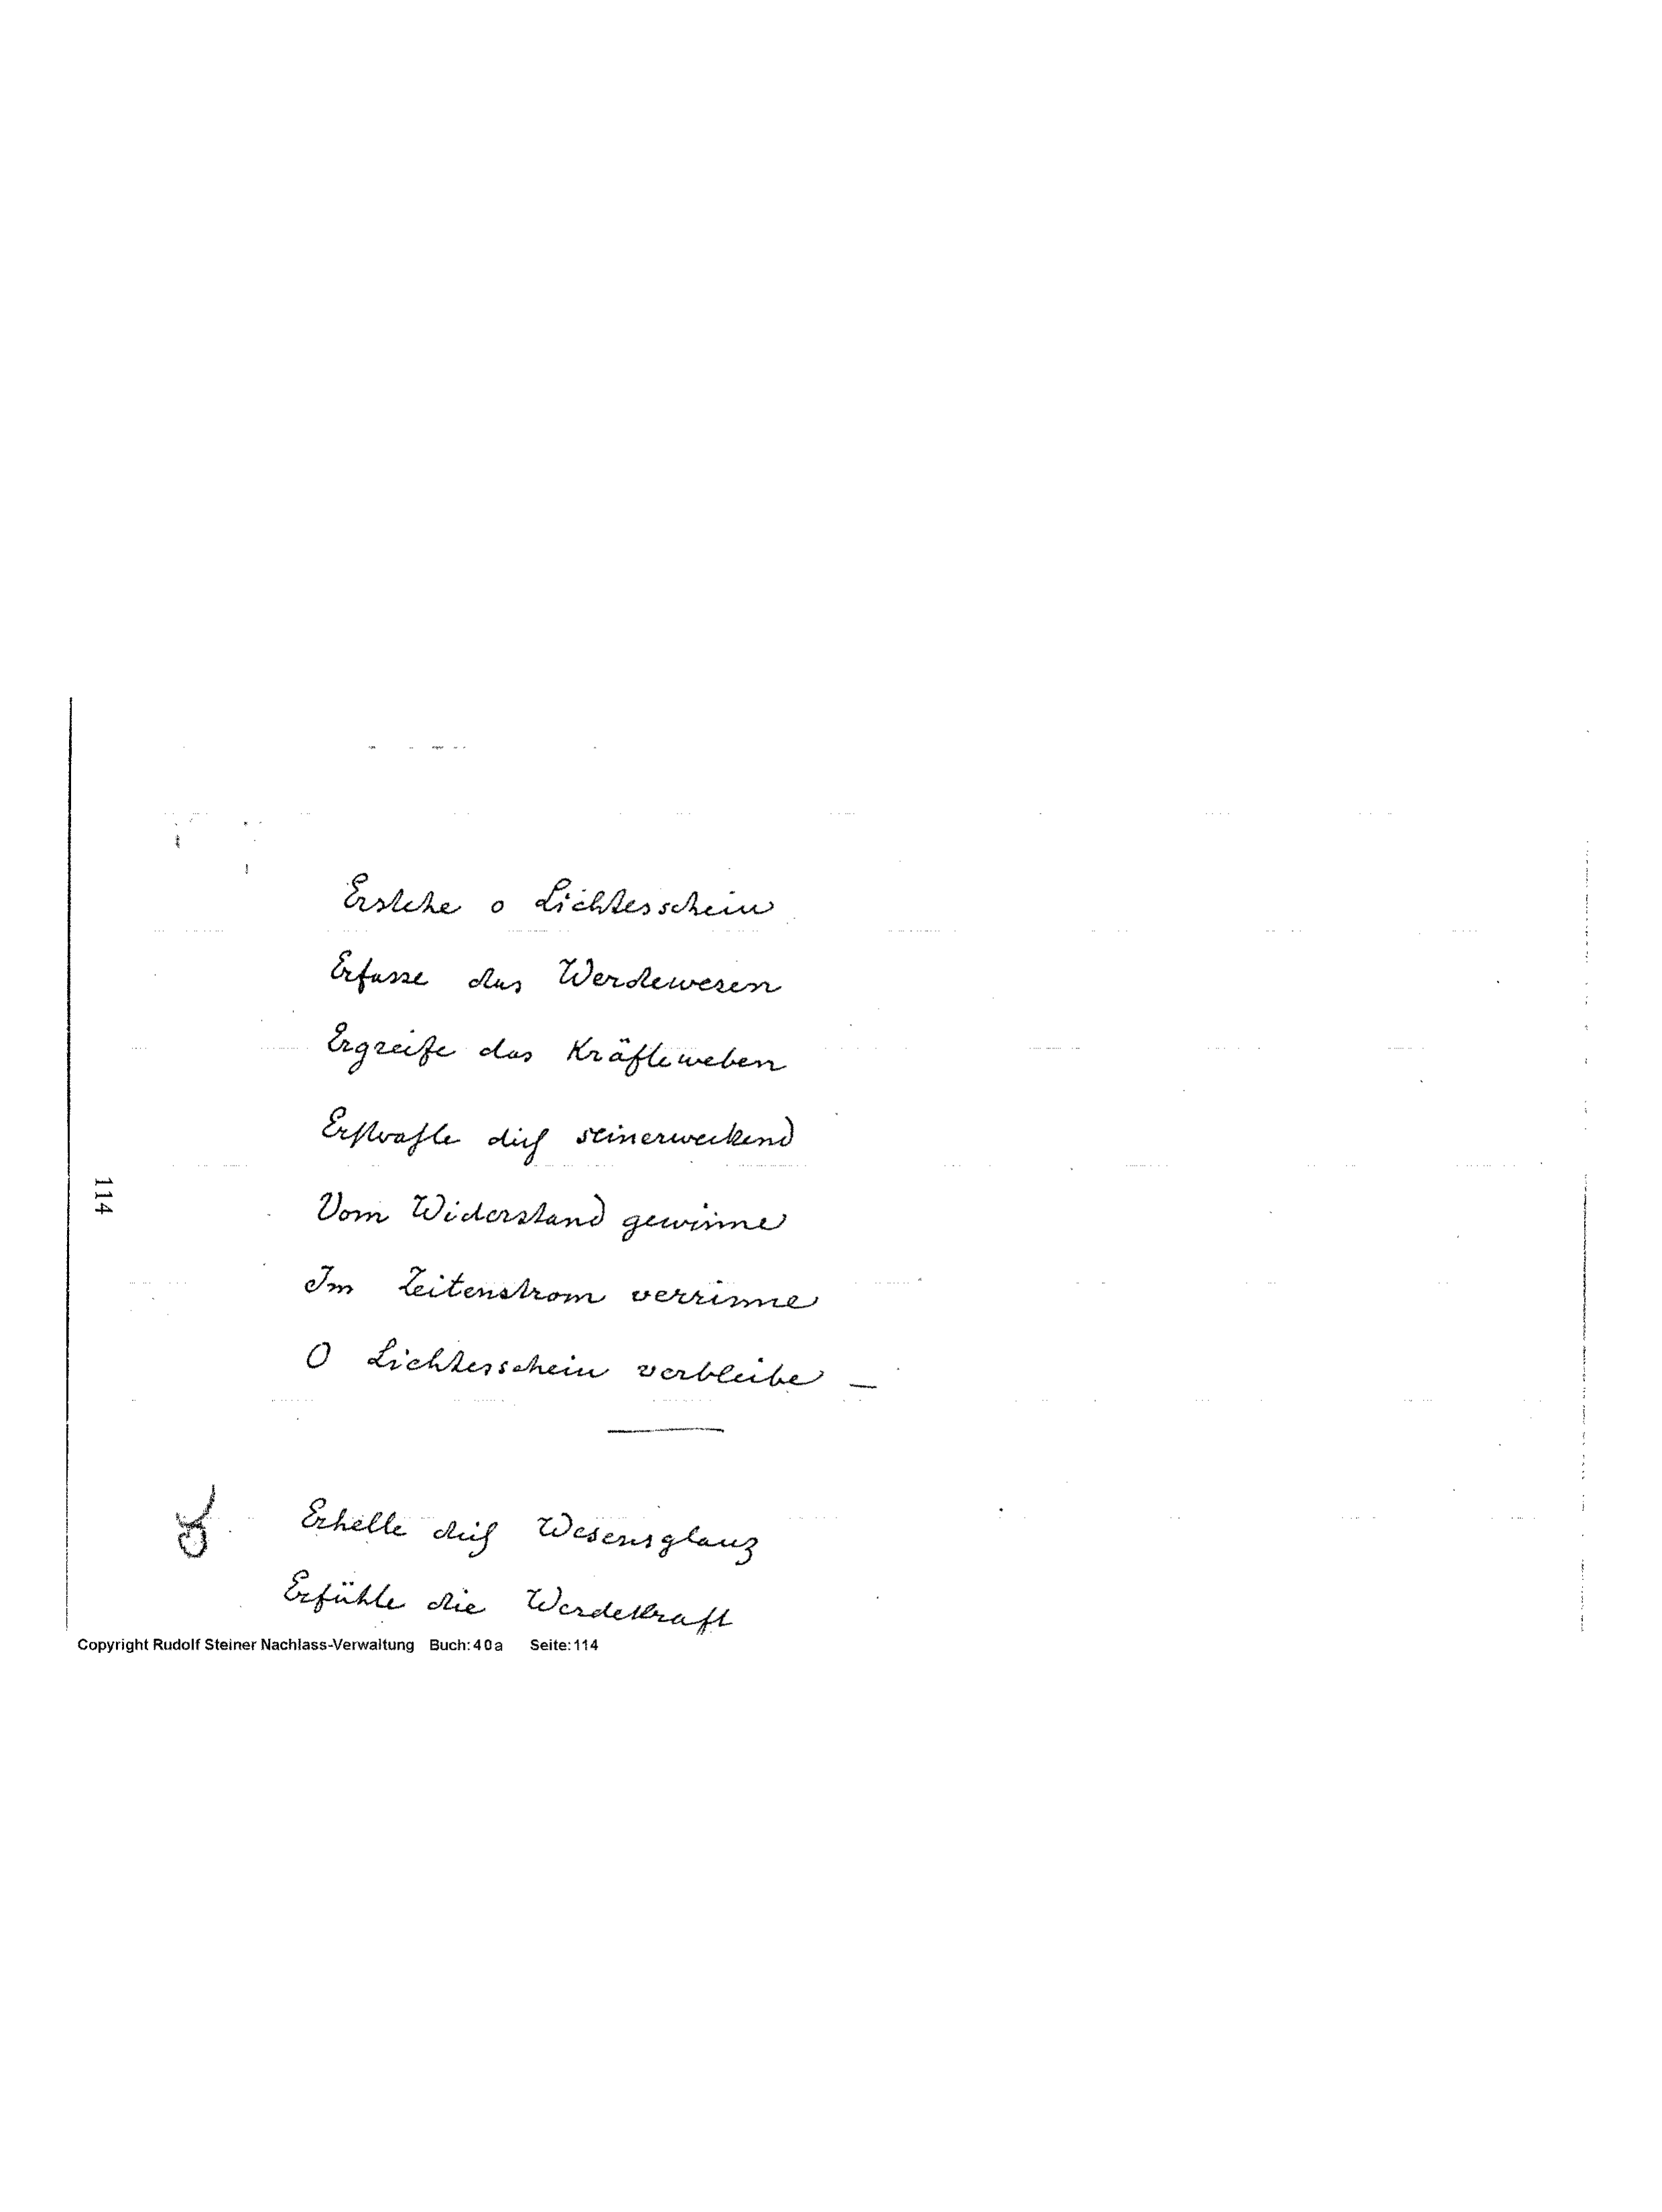 Erstehe o Lichtesschein
Erfasse das Werdewesen
Ergreife das Kräfteweben
Erstrahle dich seinerweckend
Vom Widerstand gewinne
Im Zeitenstrom verrinne
O Lichtesschein verbleibe —
♉
Erhelle dich Wesensglanz
Erfühle die Werdekraft
114
Copyright Rudolf Steiner Nachlass-Verwaltung Buch: 40a Seite: 114